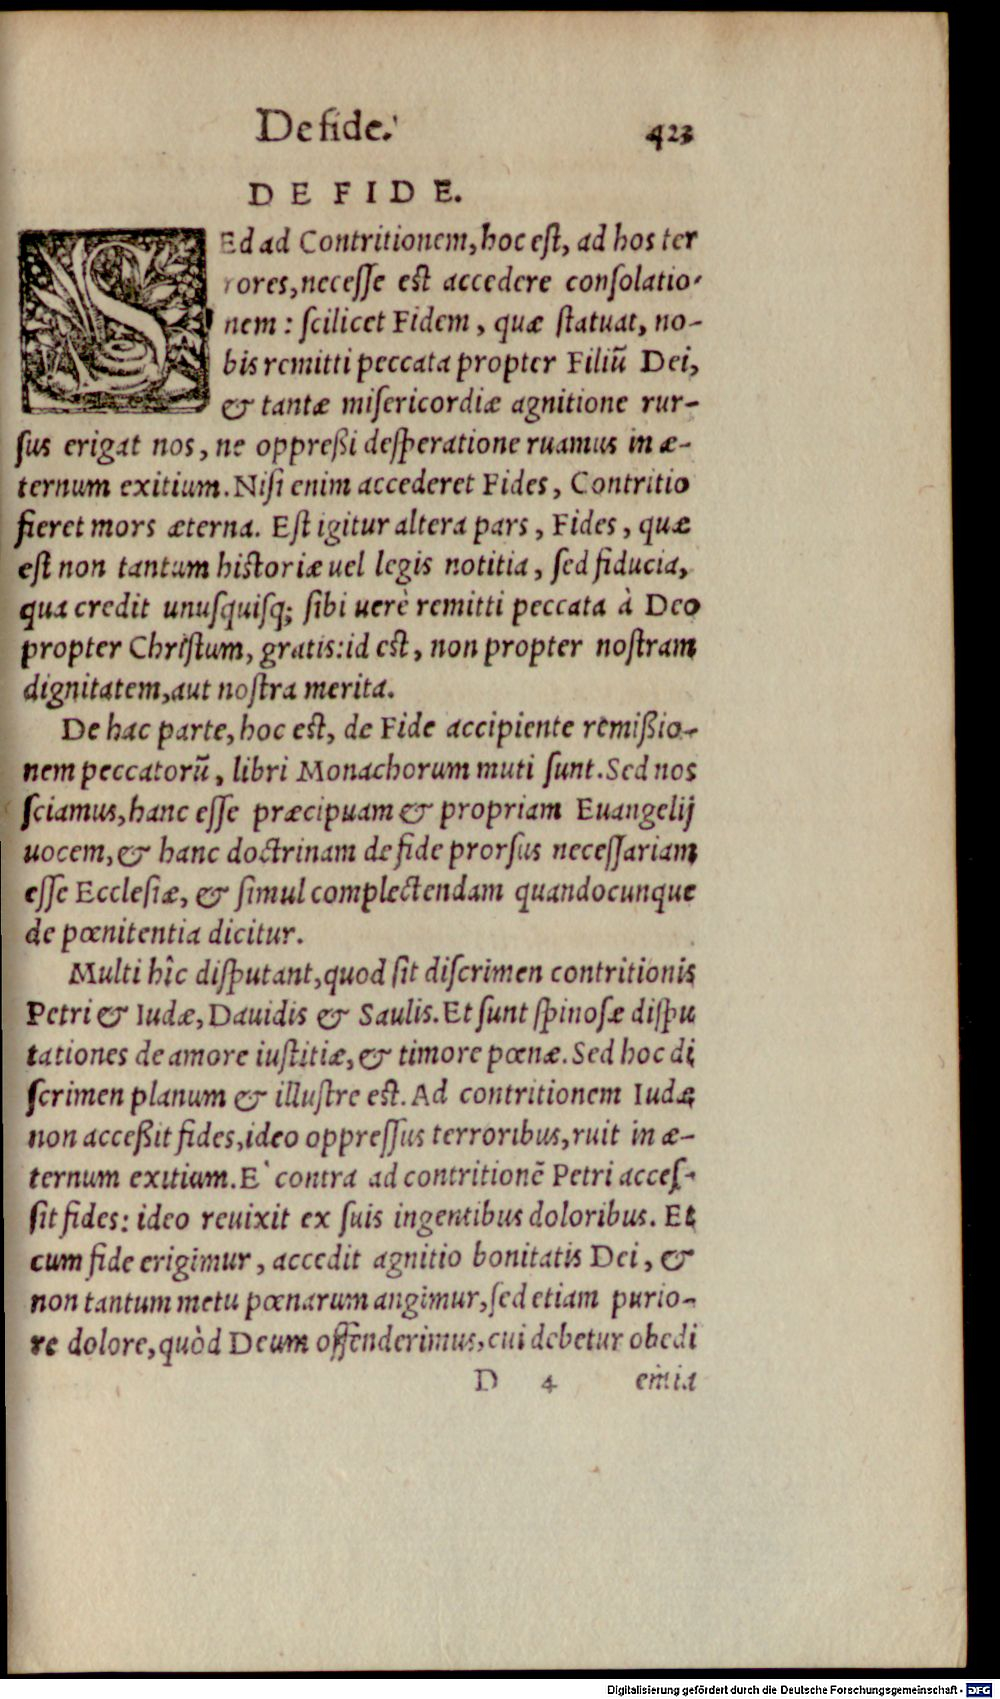 De fide. 423
DE FIDE.
SEd ad Contritionem, hoc eſt, ad hos ter
rores, neceſſe eſt accedere conſolatio-
nem: ſcilicet Fidem, quæ ſtatuat, no-
bis remitti peccata propter Filiū Dei,
& tantæ miſericordiæ agnitione rur-
ſus erigat nos, ne oppreßi deſperatione ruamus in æ-
ternum exitium. Niſi enim accederet Fides, Contritio
fieret mors æterna. Eſt igitur altera pars, Fides, quæ
eſt non tantum hiſtoriæ uel legis notitia, ſed fiducia,
qua credit unuſquiſq; ſibi uerè remitti peccata à Deo
propter Chriſtum, gratis: id eſt, non propter noſtram
dignitatem, aut noſtra merita.
De hac parte, hoc eſt, de Fide accipiente remißio-
nem peccatorū, libri Monachorum muti ſunt. Sed nos
ſciamus, hanc eſſe præcipuam & propriam Euangelij
uocem, & hanc doctrinam de fide prorſus neceſſariam
eſſe Eccleſiæ, & ſimul complectendam quandocunque
de pœnitentia dicitur.
Multi hîc diſputant, quod ſit diſcrimen contritionis
Petri & Iudæ, Dauidis & Saulis. Et ſunt ſpinoſæ diſpu
tationes de amore iuſtitiæ, & timore pœnæ. Sed hoc di
ſcrimen planum & illuſtre eſt. Ad contritionem Iudæ
non acceßit fides, ideo oppreſſus terroribus, ruit in æ-
ternum exitium. E` contra ad contritionē Petri acceſ-
ſit fides: ideo reuixit ex ſuis ingentibus doloribus. Et
cum fide erigimur, accedit agnitio bonitatis Dei, &
non tantum metu pœnarum angimur, ſed etiam purio-
re dolore, quòd Deum offenderimus, cui debetur obedi
D 4 entia
Digitalisierung gefördert durch die Deutsche Forschungsgemeinschaft - DFG